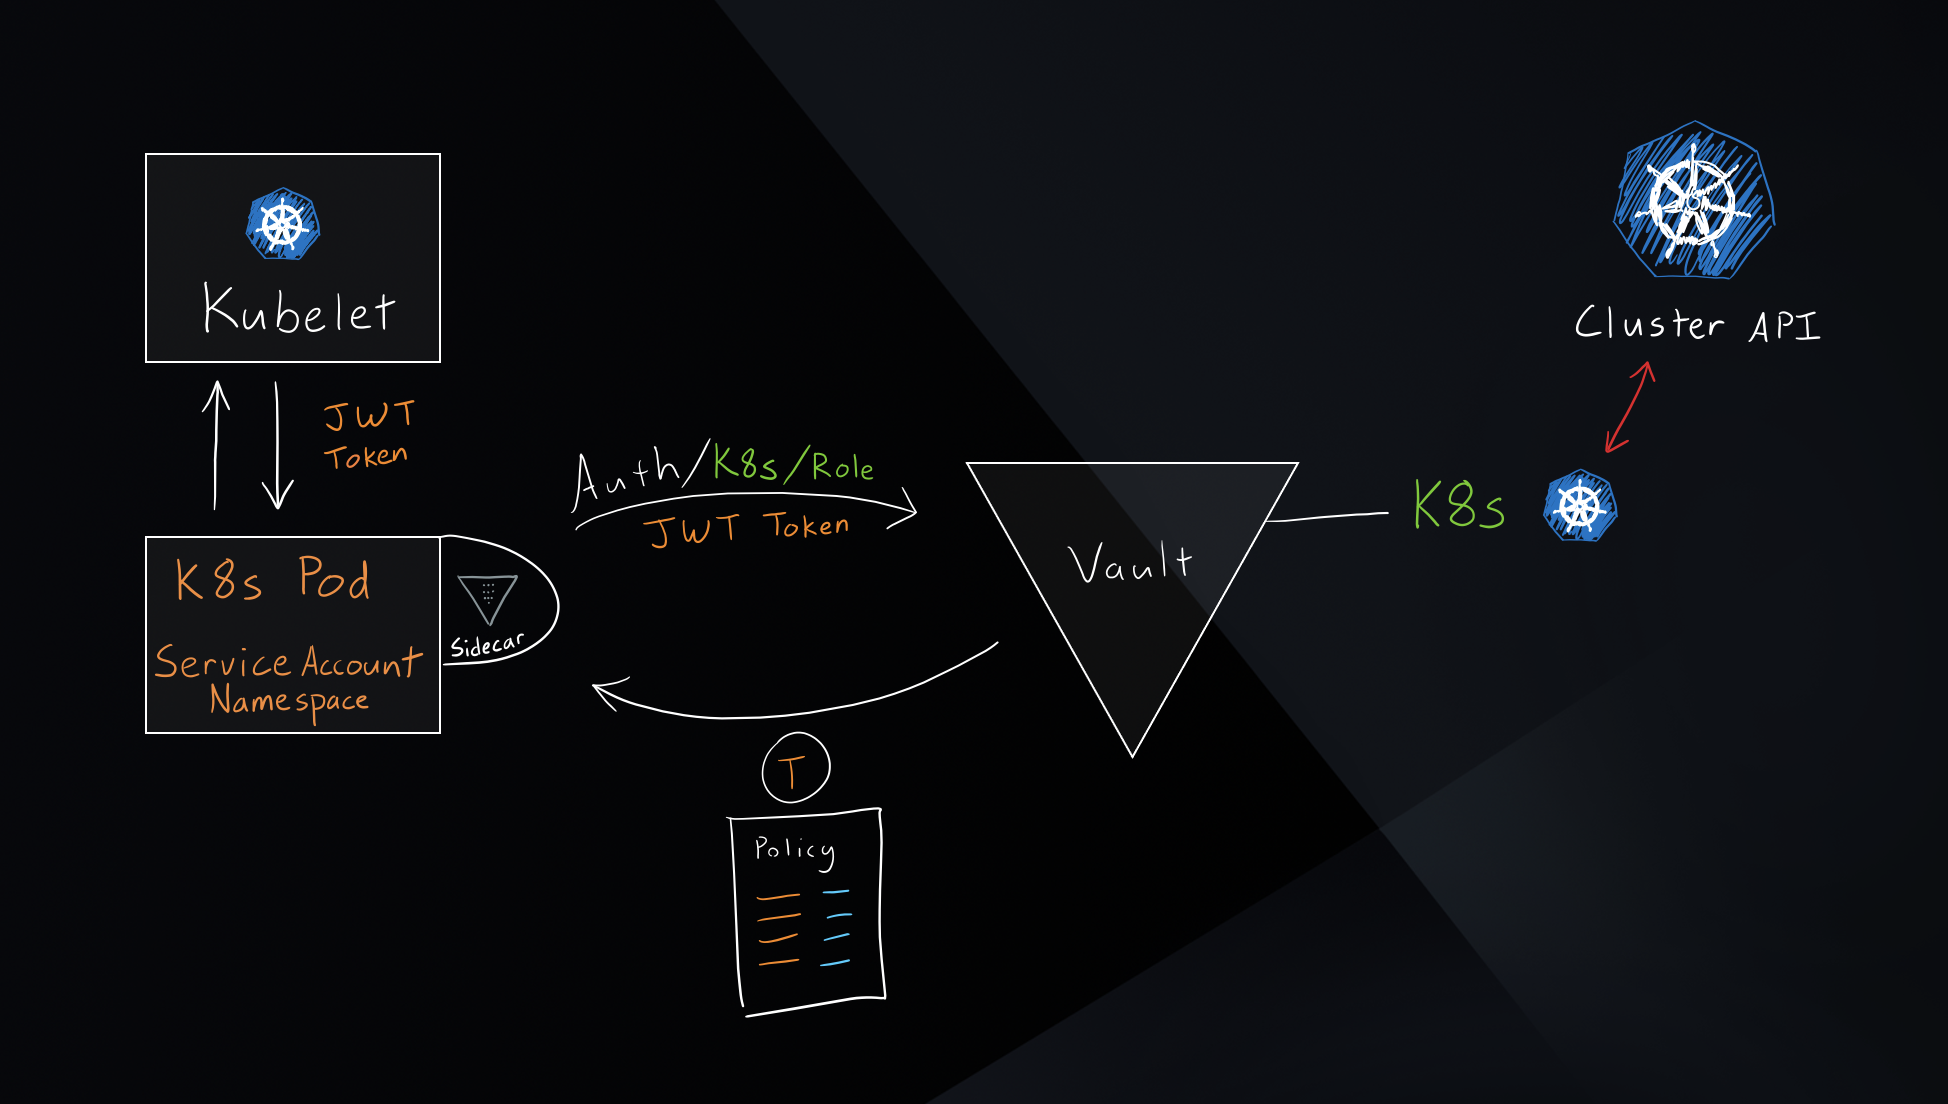 Kubelet
JWT
Token
K8s Pod
Service Account
Namespace
Sidecar
Auth/K8s/Role
JWT Token
Vault
K8s
Cluster API
T
Policy